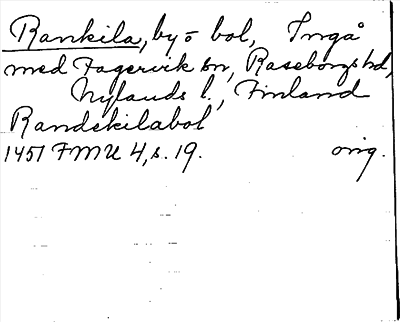 Rankila, by o bol, Ingå
med Fagervik sn, Raseborgs hd,
Nylands l., Finland
Randekilabol
1451 FMU 4, s. 19. orig.